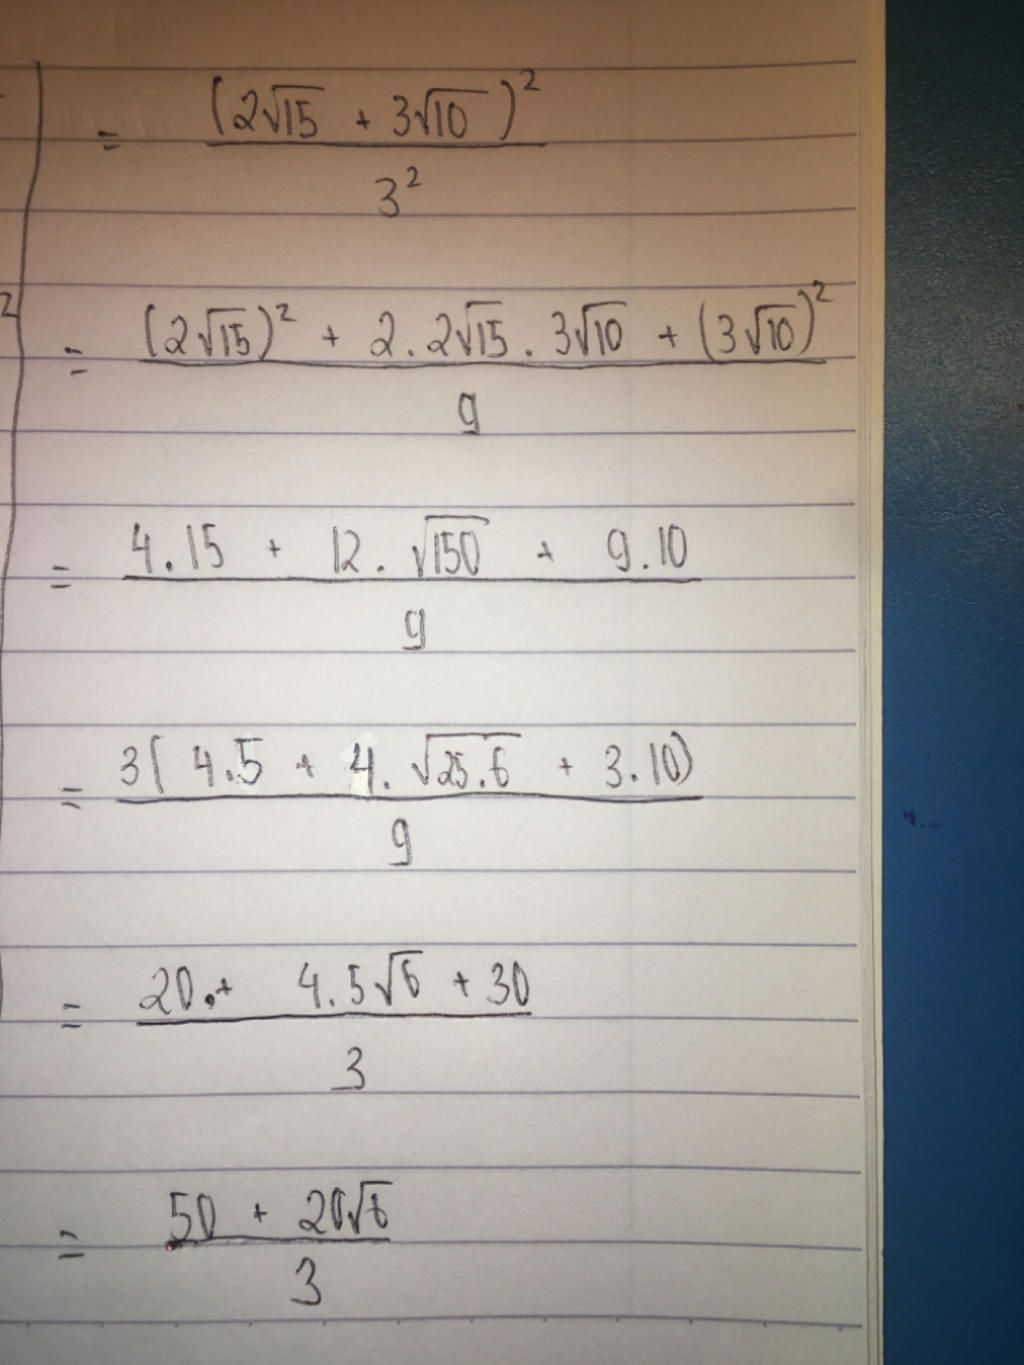 = (2√15 + 3√10)²
3²
= (2√15)² + 2.2√15.3√10 + (3√10)²
9
= 4.15 + 12.√150 + 9.10
9
= 3(4.5 + 4.√25.6 + 3.10)
9
= 20 + 4.5√6 + 30
3
= 50 + 20√6
3